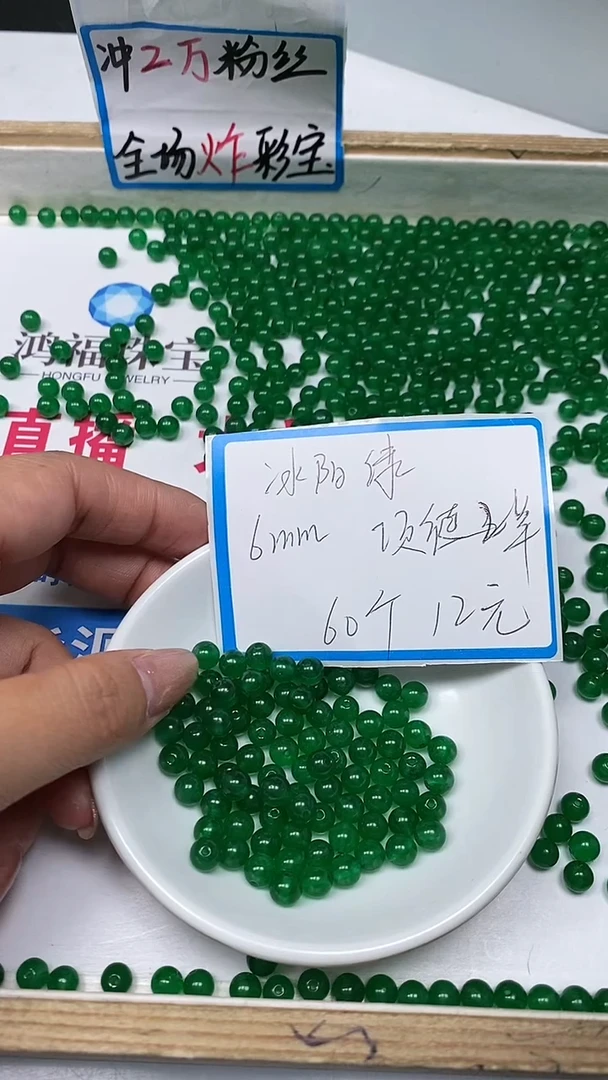 冲2万粉丝
全场炸彩宝
鸿福珠宝
HONGFU JEWELRY
直播
冰阳绿
6mm 项链半
60个 12元